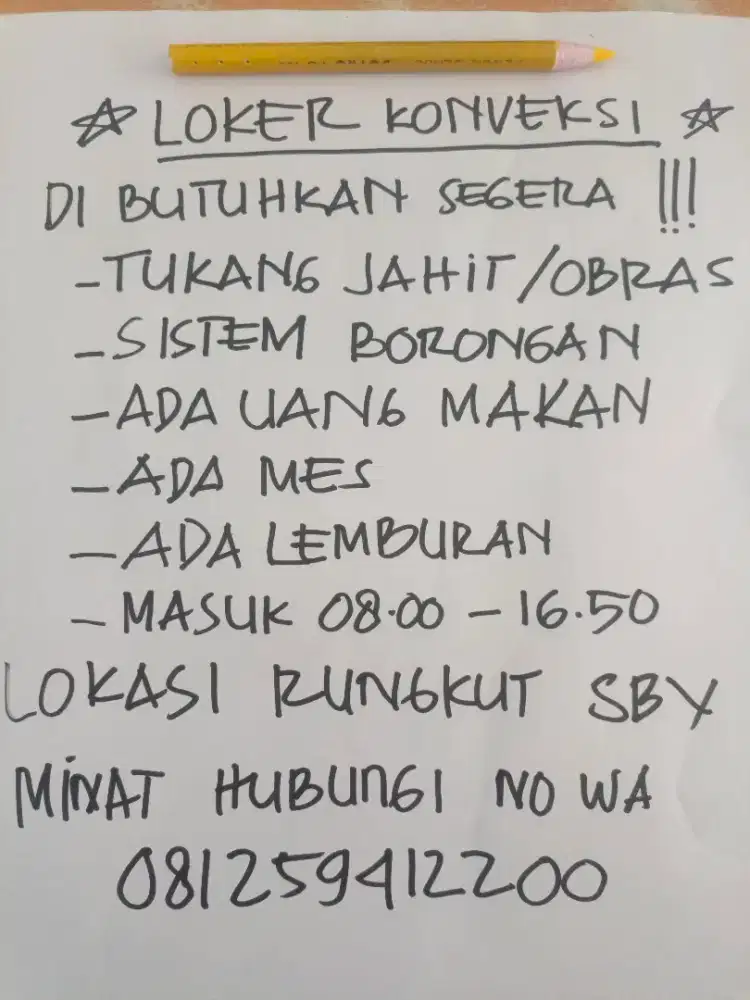 ☆ LOKER KONVEKSI ☆
DI BUTUHKAN SEGERA !!!
- TUKANG JAHIT/OBRAS
- SISTEM BORONGAN
- ADA UANG MAKAN
- ADA MES
- ADA LEMBURAN
- MASUK 08.00 - 16.50
LOKASI RUNGKUT SBY
MINAT HUBUNGI NO WA
081259412200